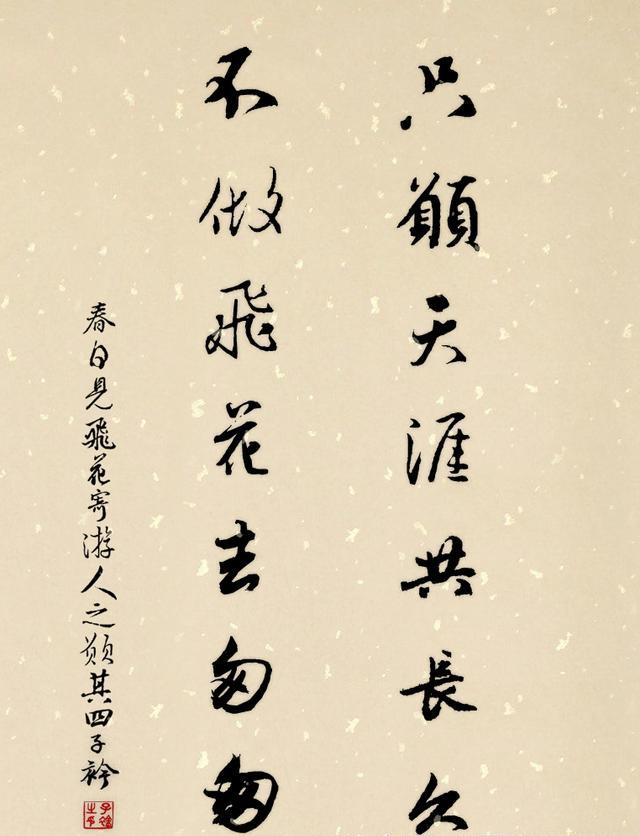 只願天涯共長久
不做飛花去匆匆
春日見飛花寄游人之願其四子衿